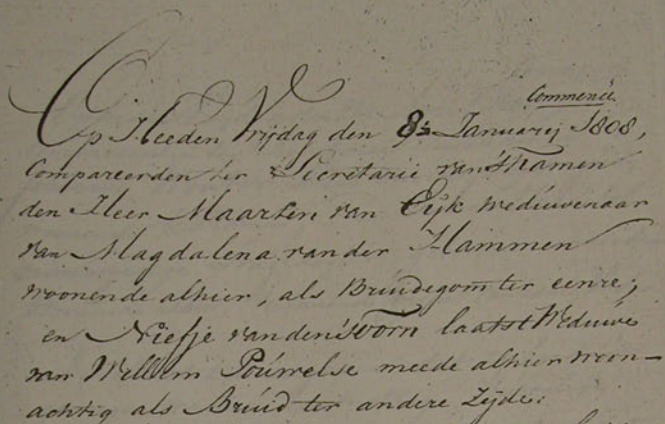 Commencé
Op Heeden Vrijdag den 8ste Januarij 1808,
Compareerden ter Secretarie van Thamen
den Heer Maarten van Eijk weduwenaar
van Magdalena vander Hammen
woonende alhier, als Bruidegom ter eenre;
en Niesje van den Toorn laatst Weduwe
van Willem Pouwelse meede alhier woon-
achtig als Bruid ter andere Zijde: